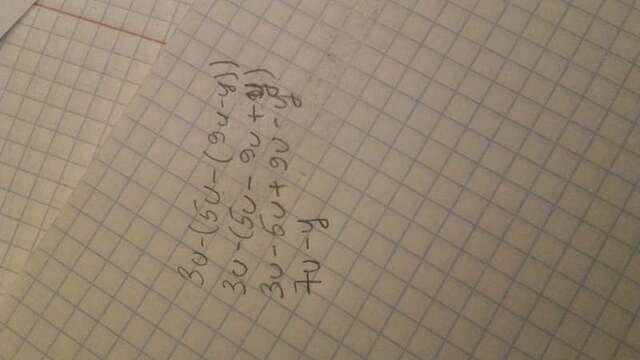 3u-(5u-(9u-y))
3u-(5u-9u+y)
3u-5u+9u-y
7u-y